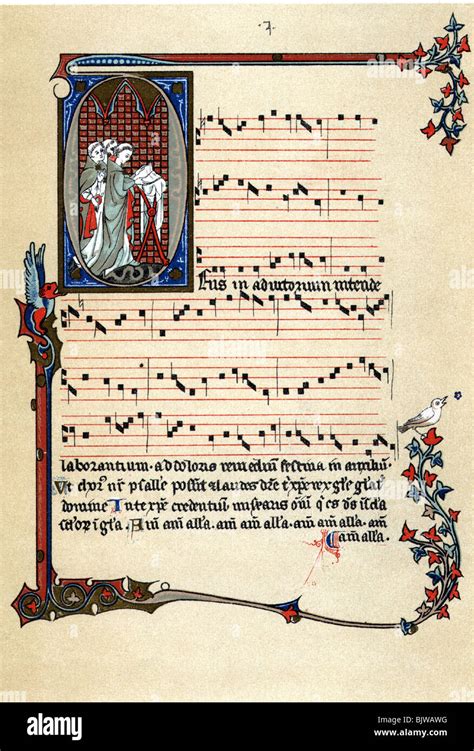 7
eus in adiutorium intende
laborantium. ad doloris remedium festina in auxiliū.
Ut psalle possit laudes xp̄e rex gl̄e gl̄a
domine In te xp̄e credentium miseraris om̄i q̄ es d̄s
celoꝝ i gl̄a. Am̄ am̄ alla. am̄ am̄ alla. am̄ am̄ alla. am̄
am̄ alla.
alamy
Image ID: BJWAWG
www.alamy.com